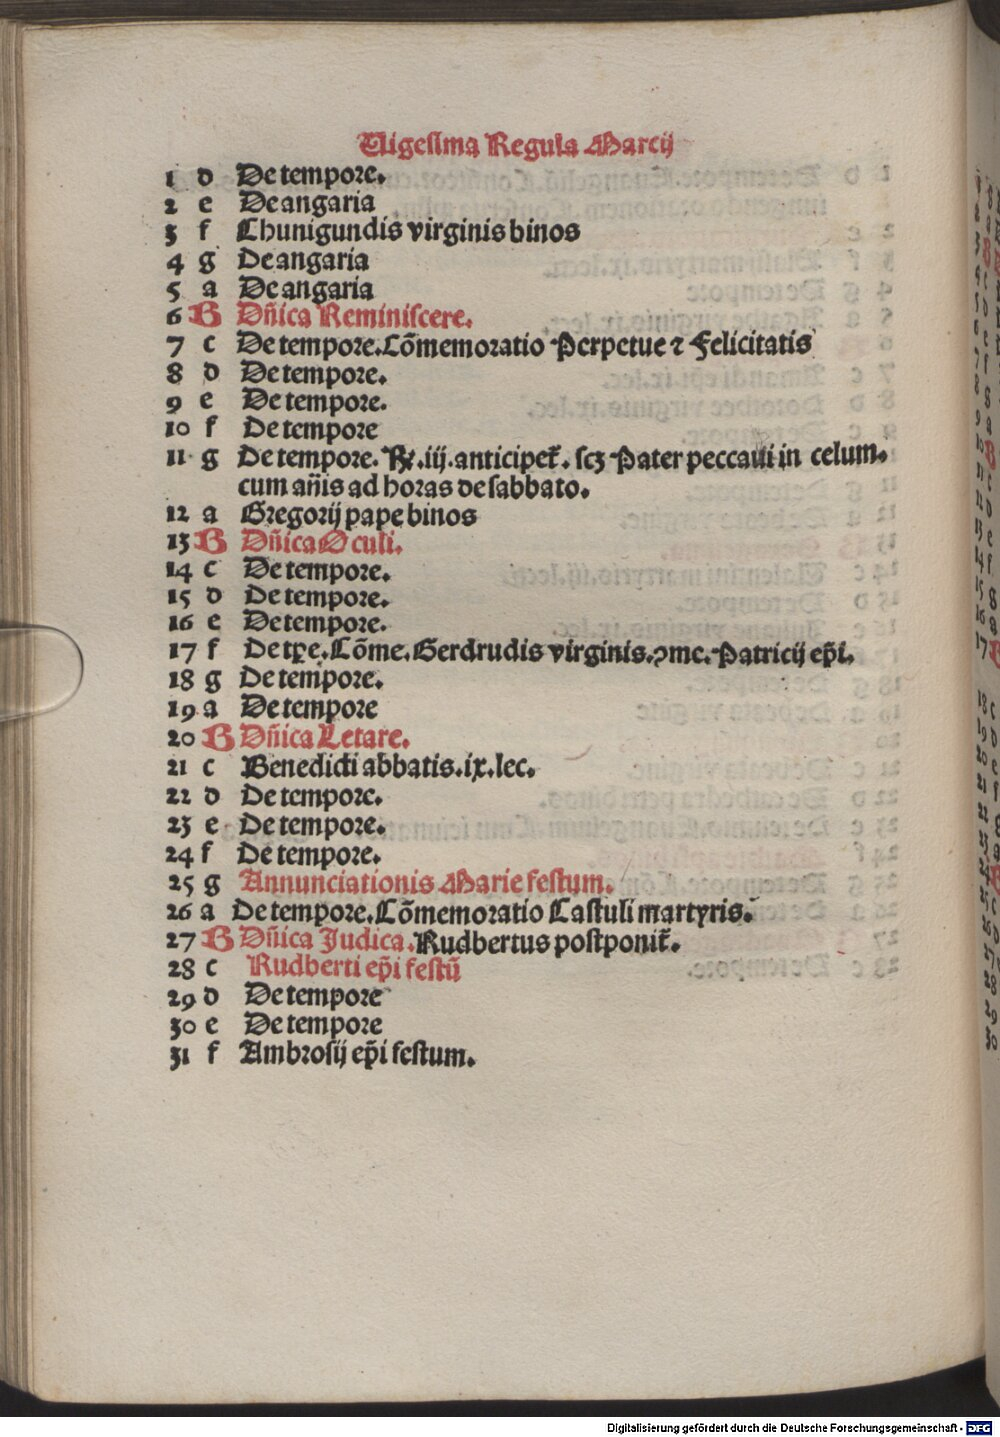 Uigesima Regula Marcij
1 d De tempore.
2 e De angaria
3 f Chunigundis virginis binos
4 g De angaria
5 a De angaria
6 B Dñica Reminiscere.
7 c De tempore. Cõmemoratio Perpetue ⁊ Felicitatis
8 d De tempore.
9 e De tempore.
10 f De tempore
11 g De tempore. R̷. iij. anticipet᷑. scꝫ Pater peccaui in celum.
cum añis ad horas de sabbato.
12 a Gregorij pape binos
13 B Dñica Oculi.
14 c De tempore.
15 d De tempore.
16 e De tempore.
17 f De tꝑe. Cõme. Gerdrudis virginis. ꝯme. Patricij ep̃i.
18 g De tempore.
19 a De tempore
20 B Dñica Letare.
21 c Benedicti abbatis. ix. lec.
22 d De tempore.
23 e De tempore.
24 f De tempore.
25 g Annunciationis Marie festum.
26 a De tempore. Cõmemoratio Castuli martyris.
27 B Dñica Judica. Rudbertus postponit᷑.
28 c Rudberti ep̃i festũ
29 d De tempore
30 e De tempore
31 f Ambrosij ep̃i festum.
Digitalisierung gefördert durch die Deutsche Forschungsgemeinschaft - DFG